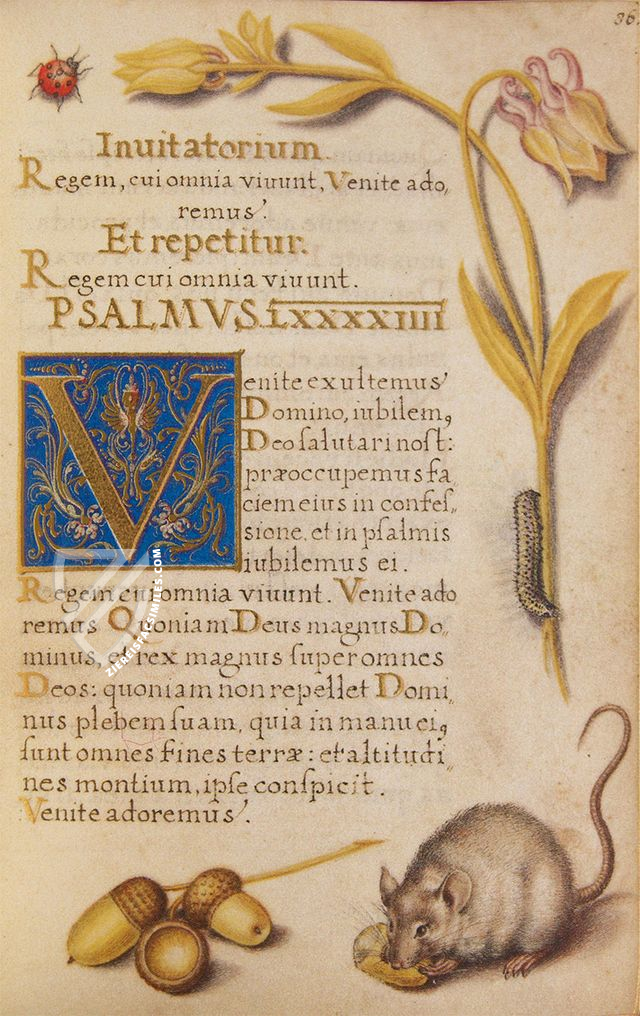 36.
Inuitatorium
Regem, cui omnia viuunt, Venite ado,,
remus.
Et repetitur.
Regem cui omnia viuunt.
PSALMVS. LXXXXIIII
Venite exultemus
Domino, iubilem,
Deo ſalutari noſt:
præoccupemus fa
ciem eius in confeſ,,
sione, et in pſalmis
iubilemus ei.
Regem cui omnia viuunt. Venite ado
remus Quoniam Deus magnus Do,,
minus, et rex magnus ſuper omnes
Deos: quoniam non repellet Domi,,
nus plebem ſuam, quia in manu ei,
ſunt omnes fines terræ: et altitudi,,
nes montium, ipſe conſpicit.
Venite adoremus.
ZIEREISFACSIMILES.COM